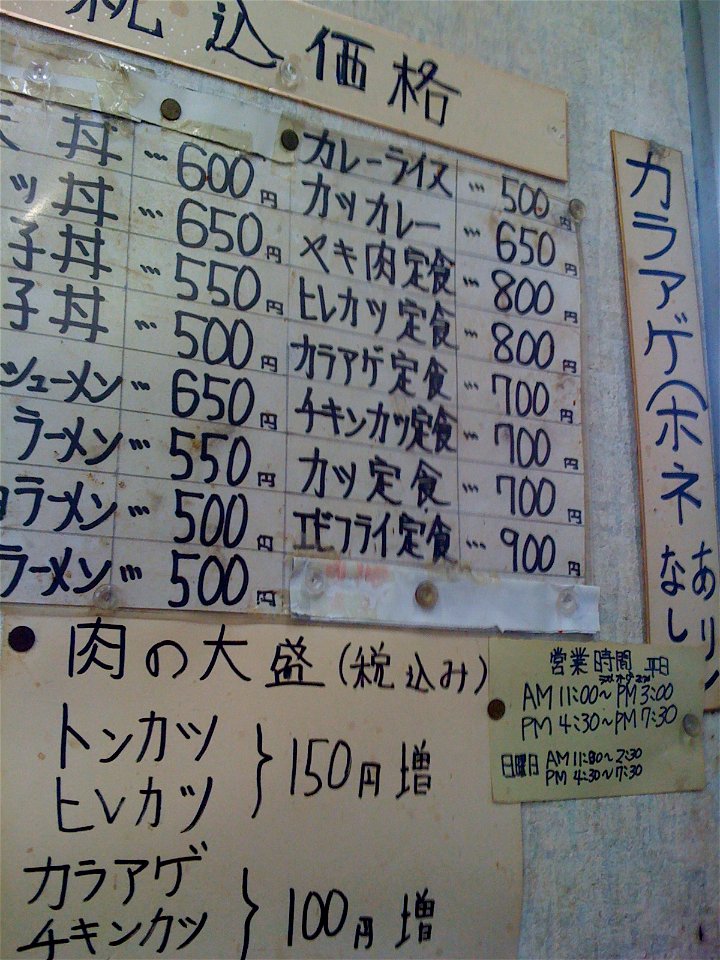 税込価格
丼 … 600円
ッ丼 … 650円
子丼 … 550円
子丼 … 500円
シューメン … 650円
ラーメン … 550円
ラーメン … 500円
ラーメン … 500円
カレーライス … 500円
カツカレー … 650円
ヤキ肉定食 … 800円
ヒレカツ定食 … 800円
カラアゲ定食 … 700円
チキンカツ定食 … 700円
カツ定食 … 700円
エビフライ定食 … 900円
カラアゲ(ホネ
あり
なし
肉の大盛(税込み)
トンカツ
ヒレカツ
150円増
カラアゲ
チキンカツ
100円増
営業時間 平日
AM 11:00~PM 3:00
PM 4:30~PM 7:30
日曜日 AM 11:30~2:30
PM 4:30~7:30